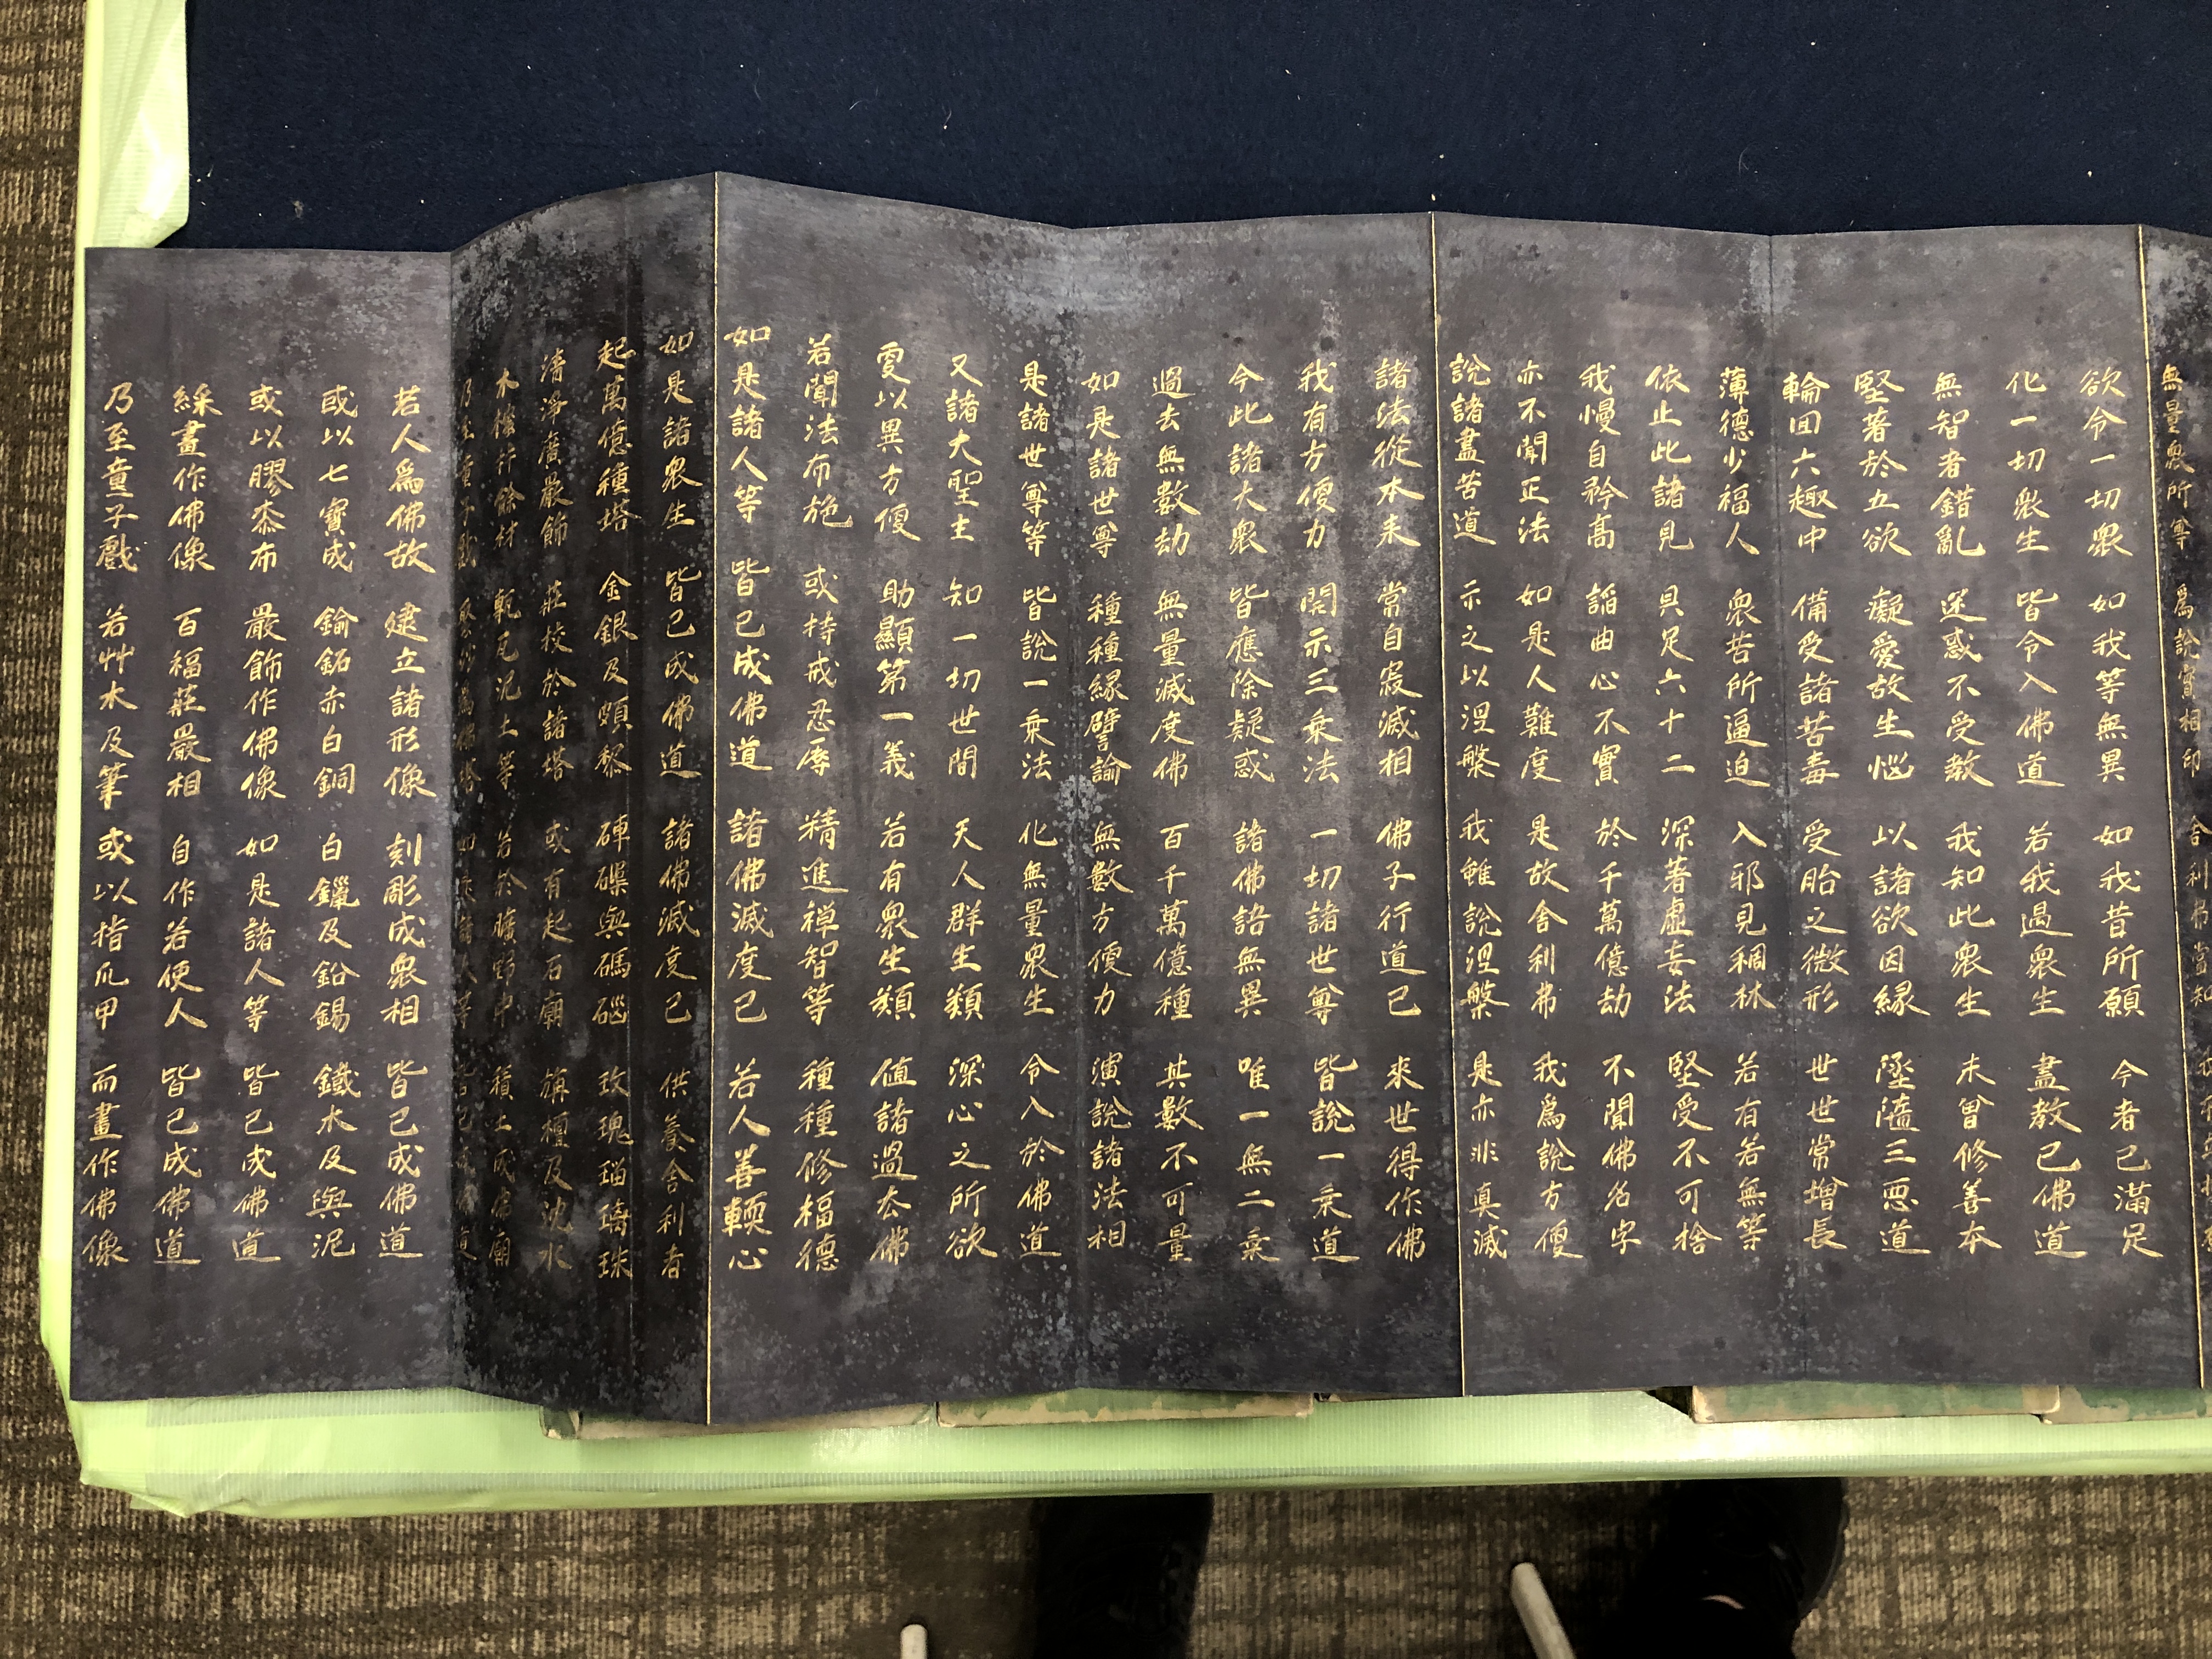 無量衆所尊 爲說實相印 舍利弗當知
欲令一切衆 如我等無異 如我昔所願 今者已滿足
化一切衆生 皆令入佛道 若我遇衆生 盡教已佛道
無智者錯亂 迷惑不受教 我知此衆生 未曾修善本
堅著於五欲 癡愛故生惱 以諸欲因緣 墜墮三惡道
輪回六趣中 備受諸苦毒 受胎之微形 世世常增長
薄德少福人 衆苦所逼迫 入邪見稠林 若有若無等
依止此諸見 具足六十二 深著虛妄法 堅受不可捨
我慢自矜高 諂曲心不實 於千萬億劫 不聞佛名字
亦不聞正法 如是人難度 是故舍利弗 我爲說方便
說諸盡苦道 示之以涅槃 我雖說涅槃 是亦非真滅
諸法從本來 常自寂滅相 佛子行道已 來世得作佛
我有方便力 開示三乘法 一切諸世尊 皆說一乘道
今此諸大衆 皆應除疑惑 諸佛語無異 唯一無二乘
過去無數劫 無量滅度佛 百千萬億種 其數不可量
如是諸世尊 種種緣譬諭 無數方便力 演說諸法相
是諸世尊等 皆說一乘法 化無量衆生 令入於佛道
又諸大聖主 知一切世間 天人群生類 深心之所欲
更以異方便 助顯第一義 若有衆生類 値諸過去佛
若聞法布施 或持戒忍辱 精進禪智等 種種修福德
如是諸人等 皆已成佛道 諸佛滅度已 若人善輭心
如是諸衆生 皆已成佛道 諸佛滅度已 供養舍利者
起萬億種塔 金銀及頗黎 硨磲與碼碯 玫瑰瑠璃珠
清淨廣嚴飾 莊校於諸塔 或有起石廟 旃檀及沈水
木櫁幷餘材 甎瓦泥土等 若於曠野中 積土成佛廟
乃至童子戲 聚沙爲佛塔 如是諸人等 皆已成佛道
若人爲佛故 建立諸形像 刻彫成衆相 皆已成佛道
或以七寶成 鍮鉐赤白銅 白鑞及鉛錫 鐵木及與泥
或以膠桼布 嚴飾作佛像 如是諸人等 皆已成佛道
綵畫作佛像 百福莊嚴相 自作若使人 皆已成佛道
乃至童子戲 若艸木及筆 或以指爪甲 而畫作佛像